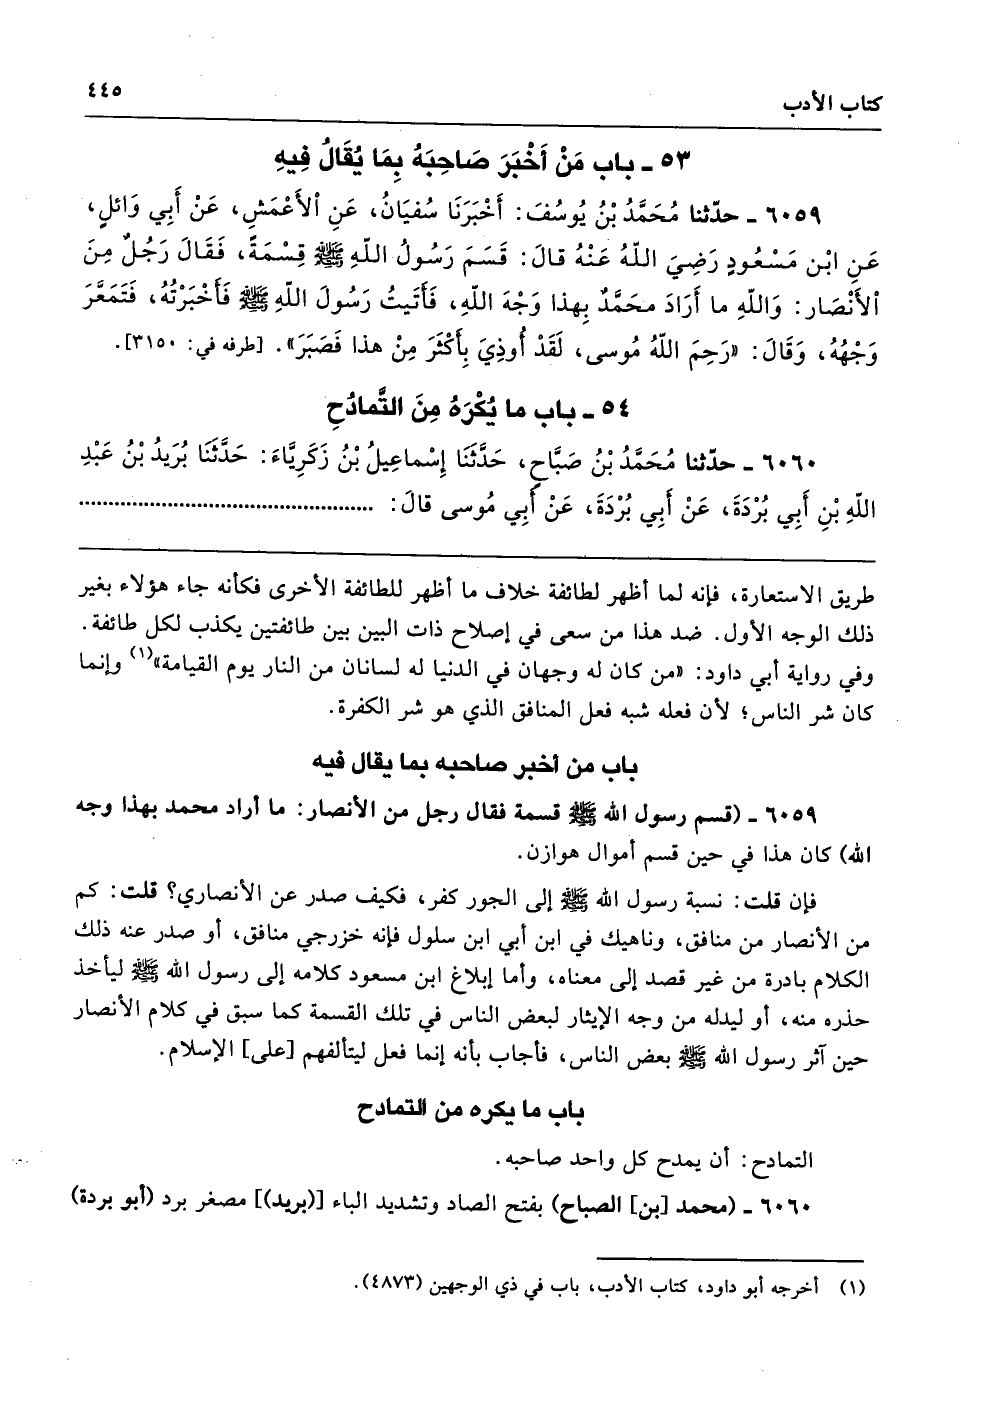 كتاب الأدب ٤٤٥
٥٣ ـ باب مَنْ أَخْبَرَ صَاحِبَهُ بِمَا يُقَالُ فِيهِ
٦٠٥٩ ـ حدّثنا مُحَمَّدُ بْنُ يُوسُفَ: أَخْبَرَنَا سُفيَانُ، عَنِ الأَعْمَشِ، عَنْ أَبِي وَائلٍ،
عَنِ ابْنِ مَسْعُودٍ رَضِيَ اللّهُ عَنْهُ قالَ: قَسَمَ رَسُولُ اللّهِ ﷺ قِسْمَةً، فَقَالَ رَجُلٌ مِنَ
الأَنْصَارِ: وَاللّهِ ما أَرَادَ محَمَّدٌ بِهذا وَجْهَ اللّهِ، فَأَتَيتُ رَسُولَ اللّهِ ﷺ فَأَخْبَرْتُهُ، فَتَمَعَّرَ
وَجْهُهُ، وَقَالَ: «رَحِمَ اللّهُ مُوسى، لَقَدْ أُوذِيَ بِأَكْثَرَ مِنْ هذا فَصَبَرَ». [طرفه في: ٣١٥٠].
٥٤ ـ باب ما يُكْرَهُ مِنَ التَّمادُحِ
٦٠٦٠ ـ حدّثنا مُحَمَّدُ بْنُ صَبَّاحٍ، حَدَّثَنَا إِسْماعِيلُ بْنُ زَكَرِيَّاءَ: حَدَّثَنَا بُرَيدُ بْنُ عَبْدِ
اللّهِ بْنِ أَبِي بُرْدَةَ، عَنْ أَبِي بُرْدَةَ، عَنْ أَبِي مُوسى قالَ: ................................................
طريق الاستعارة، فإنه لما أظهر لطائفة خلاف ما أظهر للطائفة الأخرى فكأنه جاء هؤلاء بغير
ذلك الوجه الأول. ضد هذا من سعى في إصلاح ذات البين بين طائفتين يكذب لكل طائفة.
وفي رواية أبي داود: «من كان له وجهان في الدنيا له لسانان من النار يوم القيامة»(١) وإنما
كان شر الناس؛ لأن فعله شبه فعل المنافق الذي هو شر الكفرة.
باب من أخبر صاحبه بما يقال فيه
٦٠٥٩ ـ (قسم رسول الله ﷺ قسمة فقال رجل من الأنصار: ما أراد محمد بهذا وجه
الله) كان هذا في حين قسم أموال هوازن.
فإن قلت: نسبة رسول الله ﷺ إلى الجور كفر، فكيف صدر عن الأنصاري؟ قلت: كم
من الأنصار من منافق، وناهيك في ابن أبي ابن سلول فإنه خزرجي منافق، أو صدر عنه ذلك
الكلام بادرة من غير قصد إلى معناه، وأما إبلاغ ابن مسعود كلامه إلى رسول الله ﷺ ليأخذ
حذره منه، أو ليدله من وجه الإيثار لبعض الناس في تلك القسمة كما سبق في كلام الأنصار
حين آثر رسول الله ﷺ بعض الناس، فأجاب بأنه إنما فعل ليتألفهم [على] الإسلام.
باب ما يكره من التمادح
التمادح: أن يمدح كل واحد صاحبه.
٦٠٦٠ ـ (محمد [بن] الصباح) بفتح الصاد وتشديد الباء [(بريد)] مصغر برد (أبو بردة)
(١) أخرجه أبو داود، كتاب الأدب، باب في ذي الوجهين (٤٨٧٣).